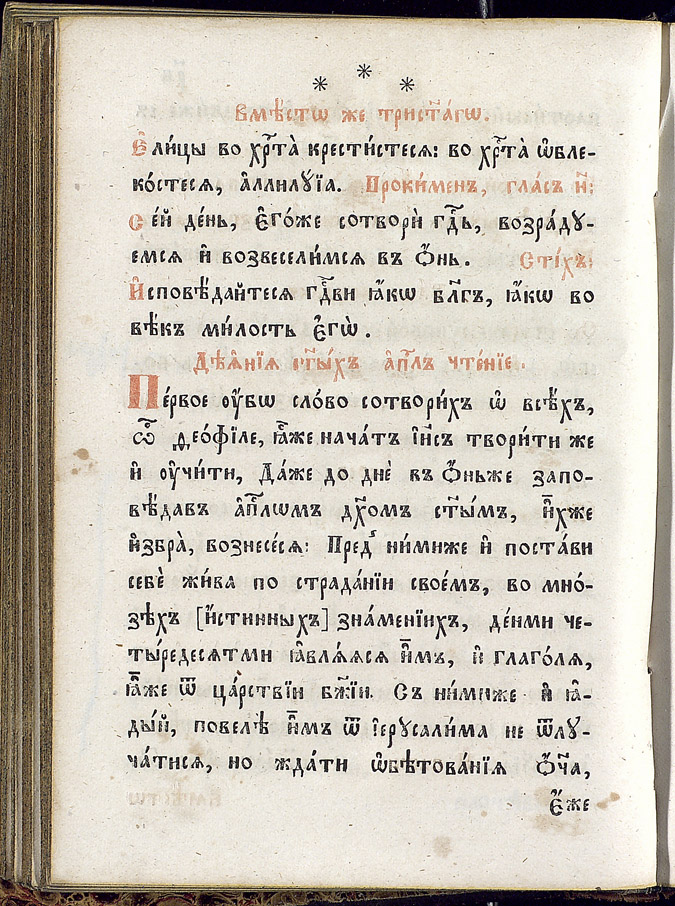 * * *
Вмѣ́стѡ же трист҃а́гѡ.
Е҆ли́цы во хрⷭ҇та̀ крести́стеся: во хрⷭ҇та̀ ѡ҆бле-
ко́стеся, а҆ллилꙋ́їа. Проки́менъ, гла́съ и҃:
Се́й де́нь, є҆го́же сотворѝ гдⷭ҇ь, возра́дꙋ-
емся и҆ возвесели́мся въ ѻ҆́нь. Сті́хъ:
И҆сповѣ́дайтеся гдⷭ҇ви ꙗ҆́кѡ бл҃гъ, ꙗ҆́кѡ во
вѣ́къ ми́лость є҆гѡ̀.
Дѣѧ҆́нїя ст҃ы́хъ а҆пⷭ҇лъ чте́нїе.
Пе́рвое ᲂу҆́бѡ сло́во сотвори́хъ ѡ҆ всѣ́хъ,
ѽ ѳео́фїле, ꙗ҆̀же нача́тъ і҆и҃съ твори́ти же
и҆ ᲂу҆чи́ти, Да́же до днѐ въ ѻ҆́ньже запо-
вѣ́давъ а҆пⷭ҇лѡмъ дх҃омъ ст҃ы́мъ, и҆̀хже
и҆збра̀, вознесе́ся: Пред̾ ни́миже и҆ поста́ви
себѐ жи́ва по страда́нїи свое́мъ, во мно́-
зѣхъ [и҆́стинныхъ] зна́менїихъ, де́нми че-
ты́редесятми ꙗ҆влѧ́яся и҆̀мъ, и҆ глаго́ля,
ꙗ҆̀же ѿ ца́рствїи бж҃їи. Съ ни́миже и҆ ꙗ҆-
ды́й, повелѣ̀ и҆̀мъ ѿ і҆ерꙋсали́ма не ѿлꙋ-
ча́тися, но жда́ти ѡ҆бѣтова́нїя ѻ҆́ч҃а,
є҆́же